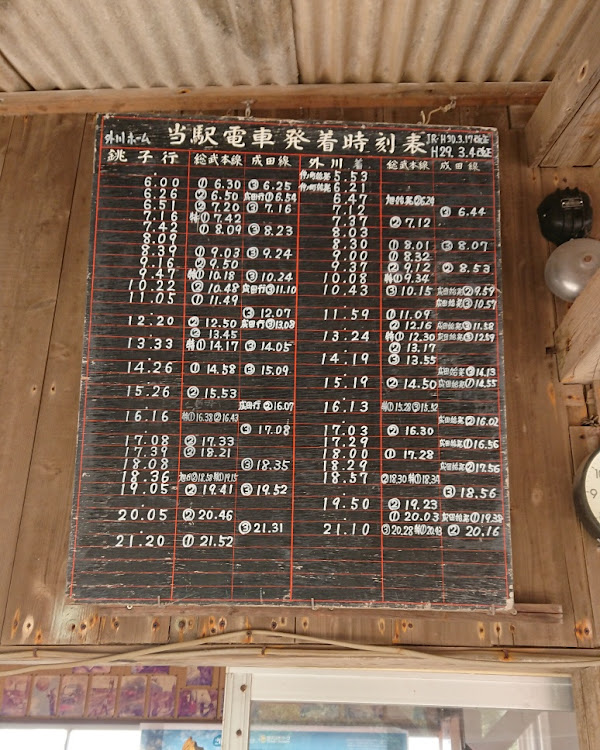 外川ホーム 当駅電車発着時刻表 JR・H30.3.17改正
H29.3.4改正
銚子行 総武本線 成田線 外川着 総武本線 成田線
5.53
6.00 ① 6.30 ③ 6.25 6.21
② 6.50 成田行① 6.54 6.47
6.51 ① 7.20 ③ 7.16 7.12 ③ 6.44
7.16 特① 7.42 ② 7.12
7.42 ① 8.09 ③ 8.23 8.03
8.09 8.30 ① 8.01 ③ 8.07
① 9.03 ③ 9.24 9.00 ① 8.32
② 9.50 9.37 ② 9.12 ② 8.53
9.47 特① 10.18 ③ 10.24 10.08 特① 9.34
10.22 ② 10.48 成田行③ 11.10 10.43 ② 10.15 成田始発② 9.59
11.05 ① 11.49 成田始発③ 10.57
③ 12.07 11.59 ① 11.09
12.20 ② 12.50 成田行③ 13.08 ② 12.16 成田始発③ 11.58
② 13.45 13.24 特① 12.30 成田始発② 12.59
13.33 特① 14.17 ③ 14.05 ② 13.17
14.19 ② 13.55
14.26 ① 14.58 ③ 15.09 成田始発③ 14.13
15.19 ② 14.50 成田始発① 14.55
15.26 ② 15.53
成田行② 16.07 16.13 特① 15.28
16.16 特① 16.38 ② 16.43 成田始発② 16.02
③ 17.08 17.03 ② 16.30
17.08 ② 17.33 17.29 成田始発① 16.56
17.39 ② 18.21 18.00 ① 17.28
18.08 ③ 18.35 18.29 成田始発② 17.56
18.36 特① 19.15 18.57 ② 18.30 特① 18.34
19.05 ② 19.41 ③ 19.52 ③ 18.56
19.50 ② 19.23
20.05 ② 20.46 ① 20.03
③ 21.31 21.10 ③ 20.28 特① 20.43 ② 20.16
21.20 ① 21.52